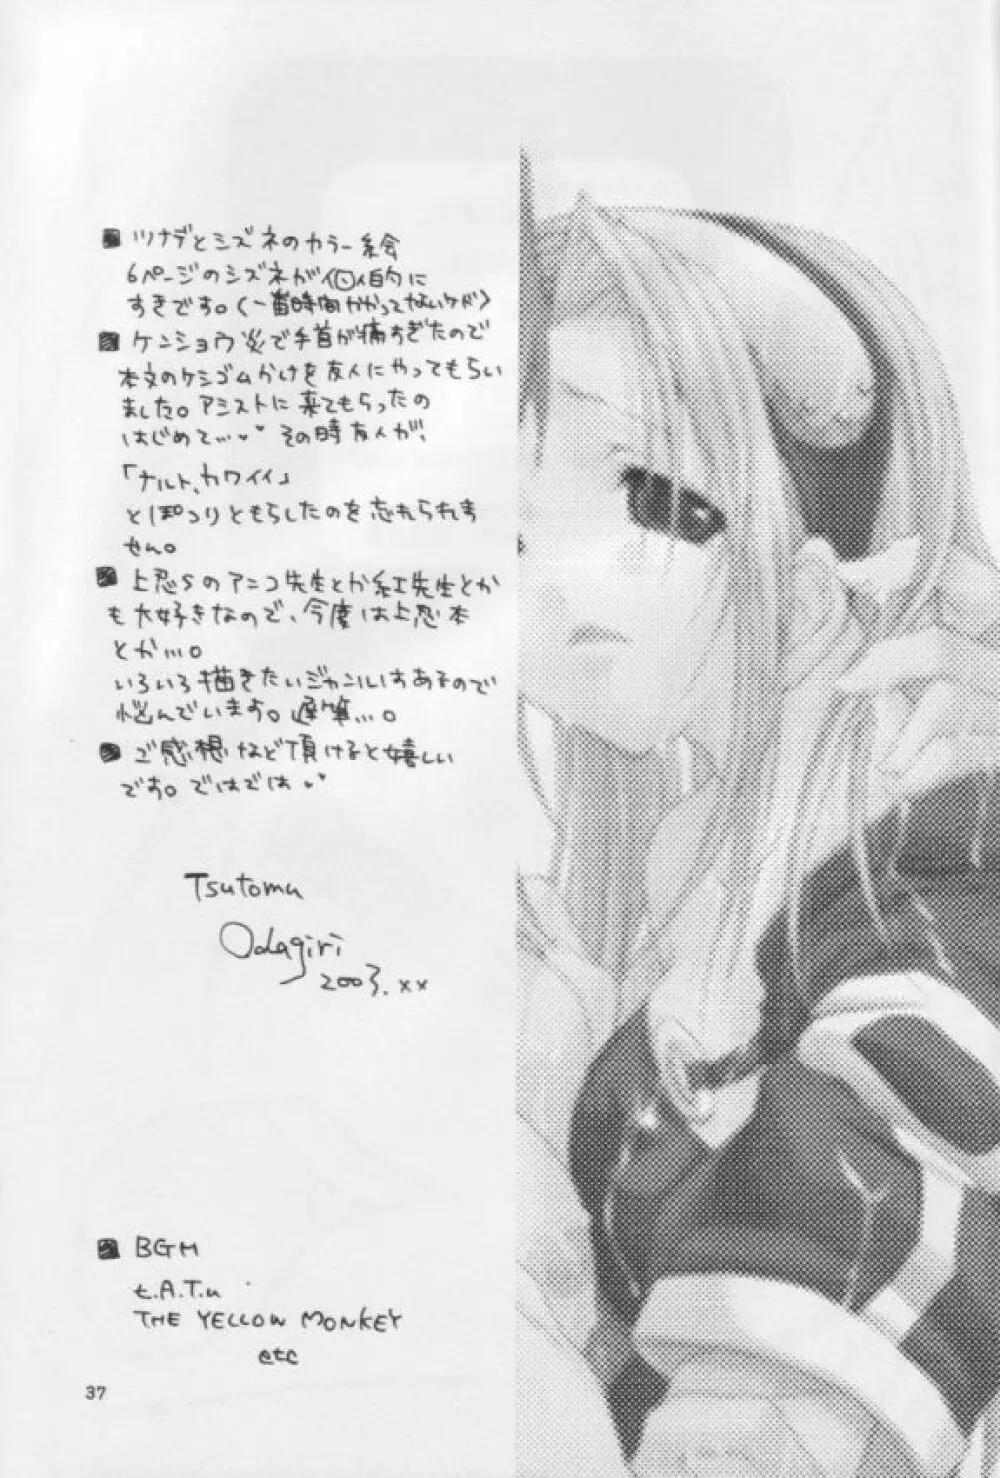 ■ ツナデとシズネのカラー絵
6ページのシズネが個人的に
すきです。(一番時間かかってないケド)
■ ケンショウ炎で手首が痛すぎたので
本文のケシゴムかけを友人にやってもらい
ました。アシストに来てもらったの
はじめて…♥♥ その時友人が、
「ナルト、カワイイ」
とぽつりともらしたのを忘れられま
せん。
■ 上忍Sのアンコ先生とか紅先生とか
も大好きなので、今度は上忍本
とか…。
いろいろ描きたいジャンルはあるので
悩んでいます。遅筆…。
■ ご感想など頂けると嬉しい
です。ではでは♥♥
Tsutomu
Odagiri
2003.××
■ BGM
t.A.T.u
THE YELLOW MONKEY
etc
37